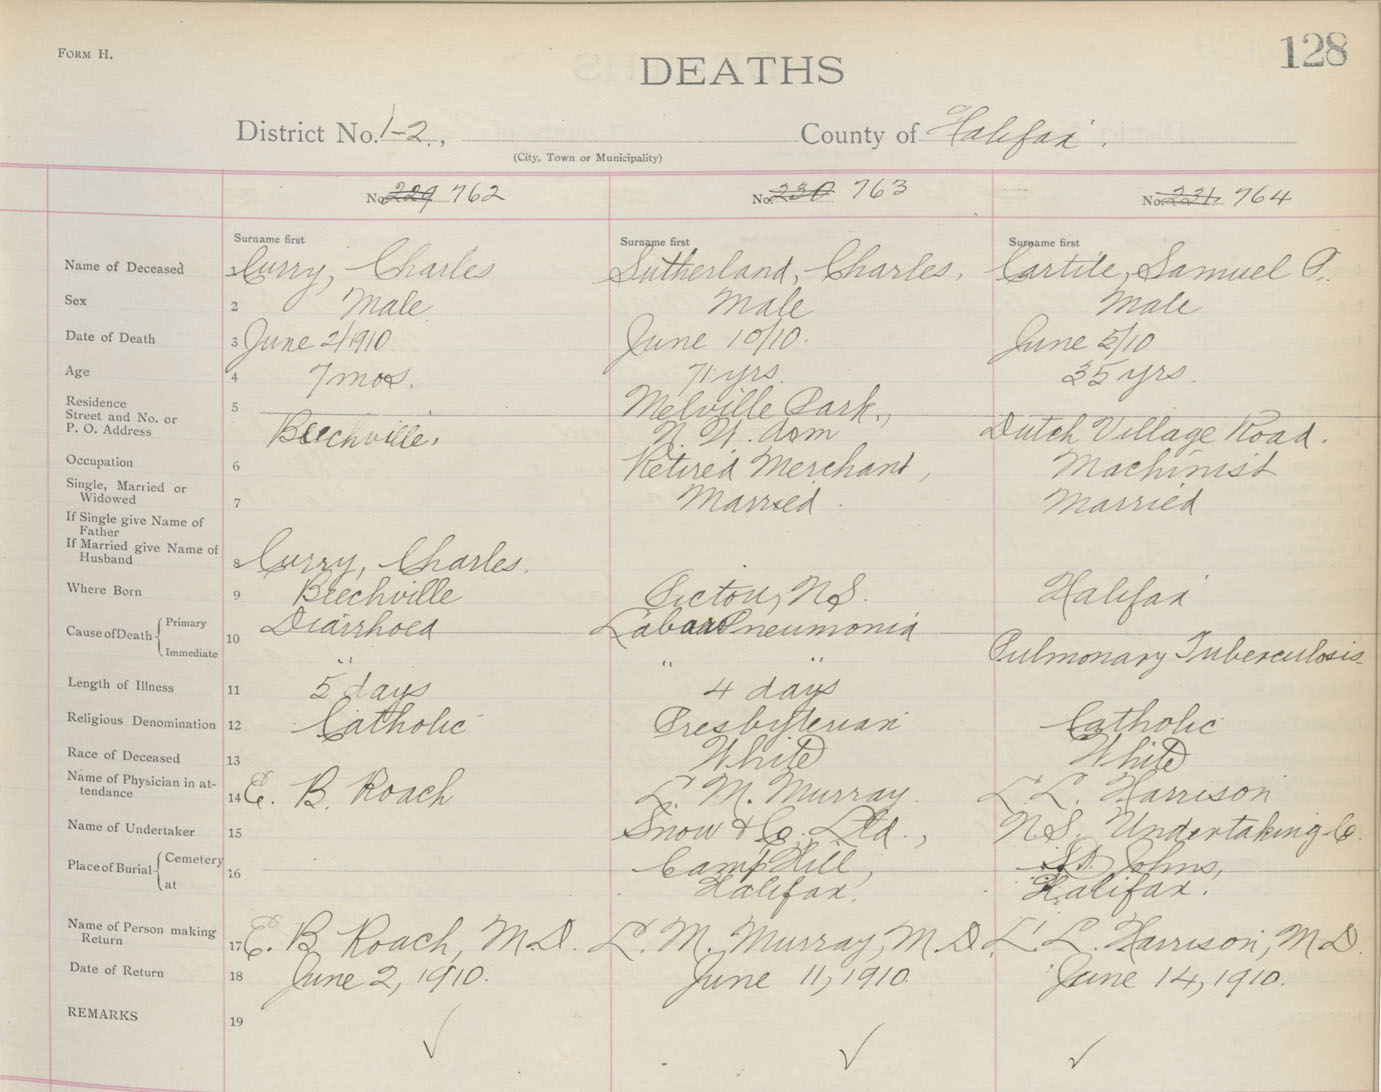 FORM H.
128
DEATHS
District No. 1-2, County of Halifax.
(City, Town or Municipality)
No. 229 762 No. 230 763 No. 231. 764
Surname first Surname first Surname first
Name of Deceased 1 Curry, Charles Sutherland, Charles, Samuel
Sex 2 Male Male Male
Date of Death 3 June 2/1910 June 10/10. June 5/10
Age 4 7 mos. 71 yrs. 35 yrs.
Residence 5 Melville Park,
Street and No. or
P. O. Address Beechville, N. W. Arm Dutch Village Road.
Occupation 6 Retired Merchant, Machinist
Single, Married or
Widowed 7 Married Married
If Single give Name of
Father
If Married give Name of
Husband 8 Curry, Charles.
Where Born 9 Beechville Pictou, N.S. Halifax
Cause of Death Primary 10 Diarrhoea Pneumonia
Immediate " " " Pulmonary Tuberculosis
Length of Illness 11 5 days 4 days
Religious Denomination 12 Catholic Presbyterian Catholic
Race of Deceased 13 White White
Name of Physician in at-
tendance 14 E. B. Roach L. M. Murray L. L. Harrison
Name of Undertaker 15 Snow & Co., Ltd., N.S. Undertaking Co.
Place of Burial Cemetery 16 Camp Hill, St. Johns,
at Halifax. Halifax.
Name of Person making
Return 17 E. B. Roach, M.D. L. M. Murray, M.D. L. L. Harrison, M.D.
Date of Return 18 June 2, 1910. June 11, 1910. June 14, 1910.
REMARKS 19